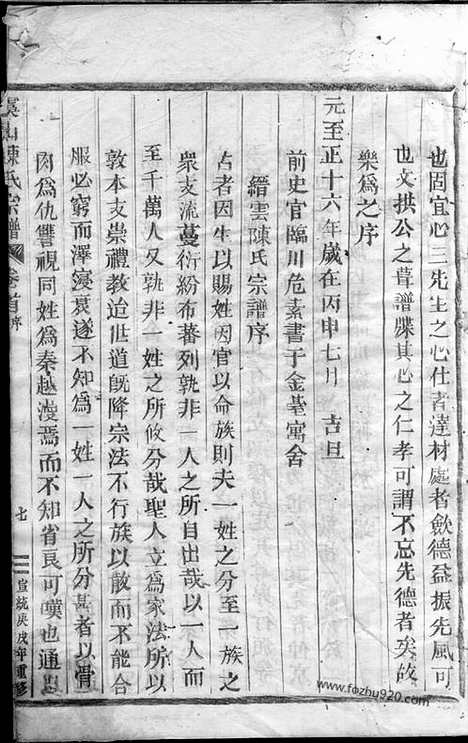 也固宜心三先生之心仕者達材處者歛德益振先風可
也文拱公之葺譜牒其心之仁孝可謂不忘先德者矣故
樂爲之序
元至正十六年歲在丙申七月 吉旦
前史官臨川危素書于金臺寓舍
縉雲陳氏宗譜序
古者因生以賜姓因官以命族則夫一姓之分至一族之
衆支流蔓衍紛布蕃列孰非一人之所自出哉以一人而
至千萬人又孰非一姓之所攸分哉聖人立爲家法所以
敦本支崇禮教迨世道旣降宗法不行族以散而不能合
服必窮而澤寖衰遂不知爲一姓一人之所分甚者以骨
肉爲仇讐視同姓爲秦越漫焉而不知省良可嘆也通
山陳氏宗譜 卷首 序 七 宣統庚戌年重修
www.fozhu920.com